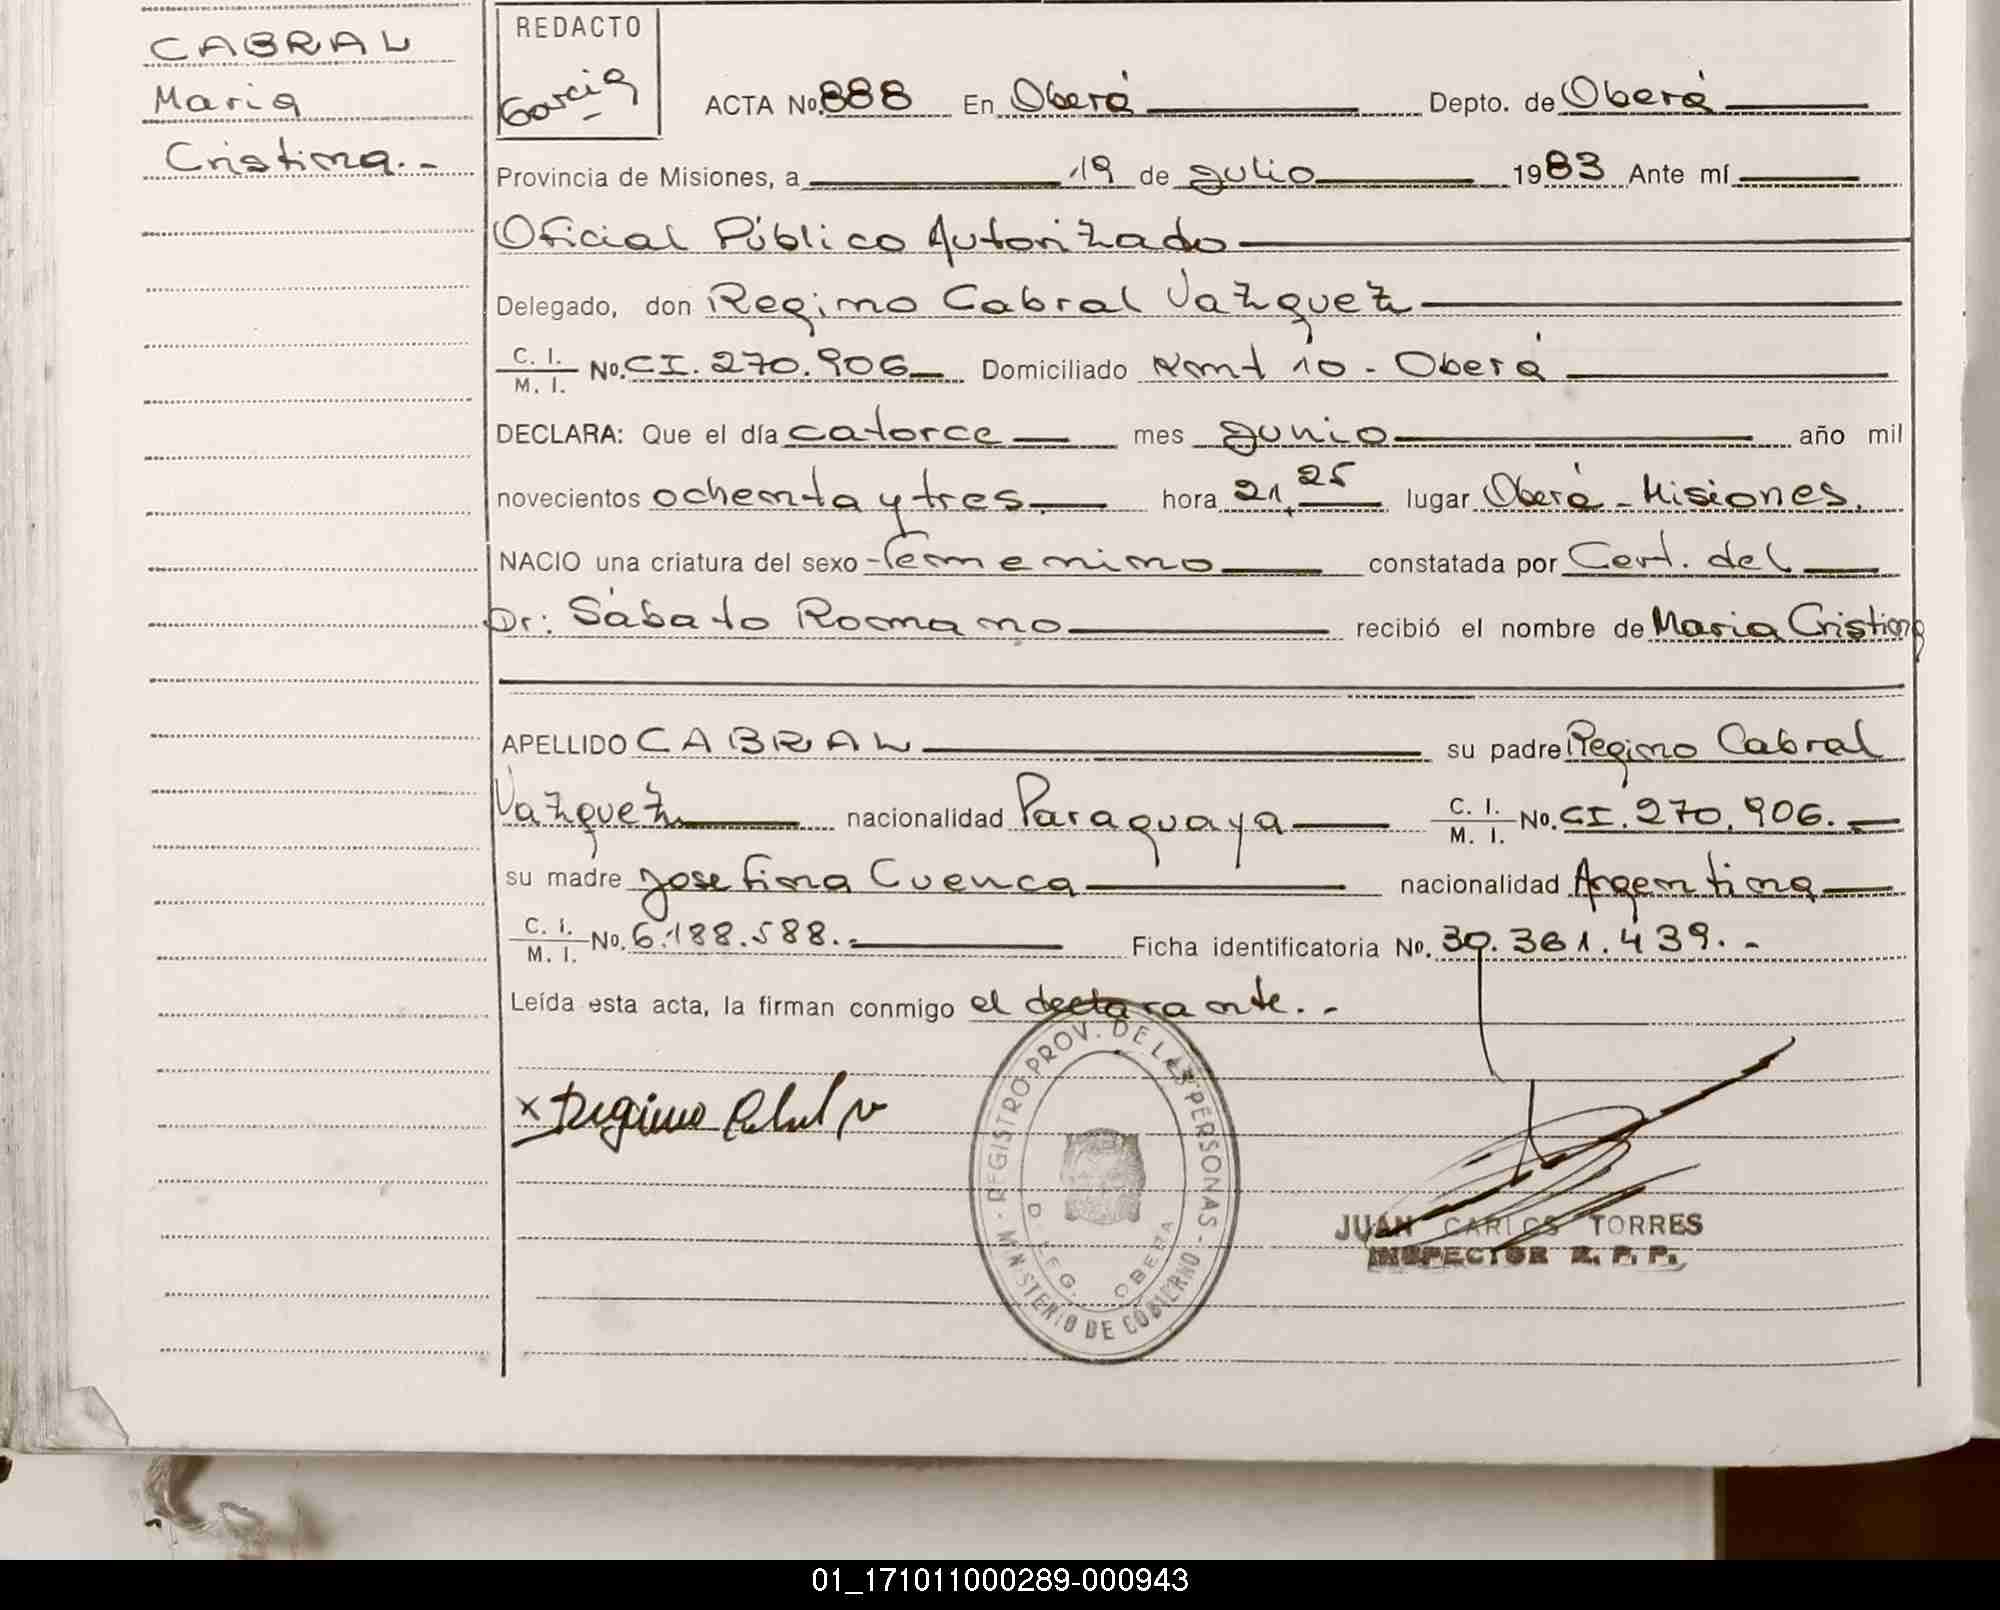 CABRAL
Maria
Cristina.-
REDACTO
Garcia
ACTA No. 888 En Oberá Depto. de Oberá
Provincia de Misiones, a 19 de Julio 1983 Ante mí
Oficial Público Autorizado
Delegado, don Regino Cabral Vazquez
C. I. / M. I. No. CI. 270.906 Domiciliado Kmt 10 - Oberá
DECLARA: Que el día catorce mes Junio año mil
novecientos ochenta y tres hora 21,25 lugar Oberá - Misiones.
NACIO una criatura del sexo femenino constatada por Cert. del
Dr: Sábato Romano recibió el nombre de Maria Cristina
APELLIDO CABRAL su padre Regino Cabral
Vazquez nacionalidad Paraguaya C. I. / M. I. No. CI. 270.906.
su madre Josefina Cuenca nacionalidad Argentina
C. I. / M. I. No. 6.188.588.- Ficha identificatoria No. 30.361.439.-
Leída esta acta, la firman conmigo el declarante.-
x Regino Cabral v
· REGISTRO PROV. DE LAS PERSONAS ·
MINISTERIO DE GOBIERNO
DELEG. OBERA
JUAN CARLOS TORRES
INSPECTOR R. P. P.
01_171011000289-000943